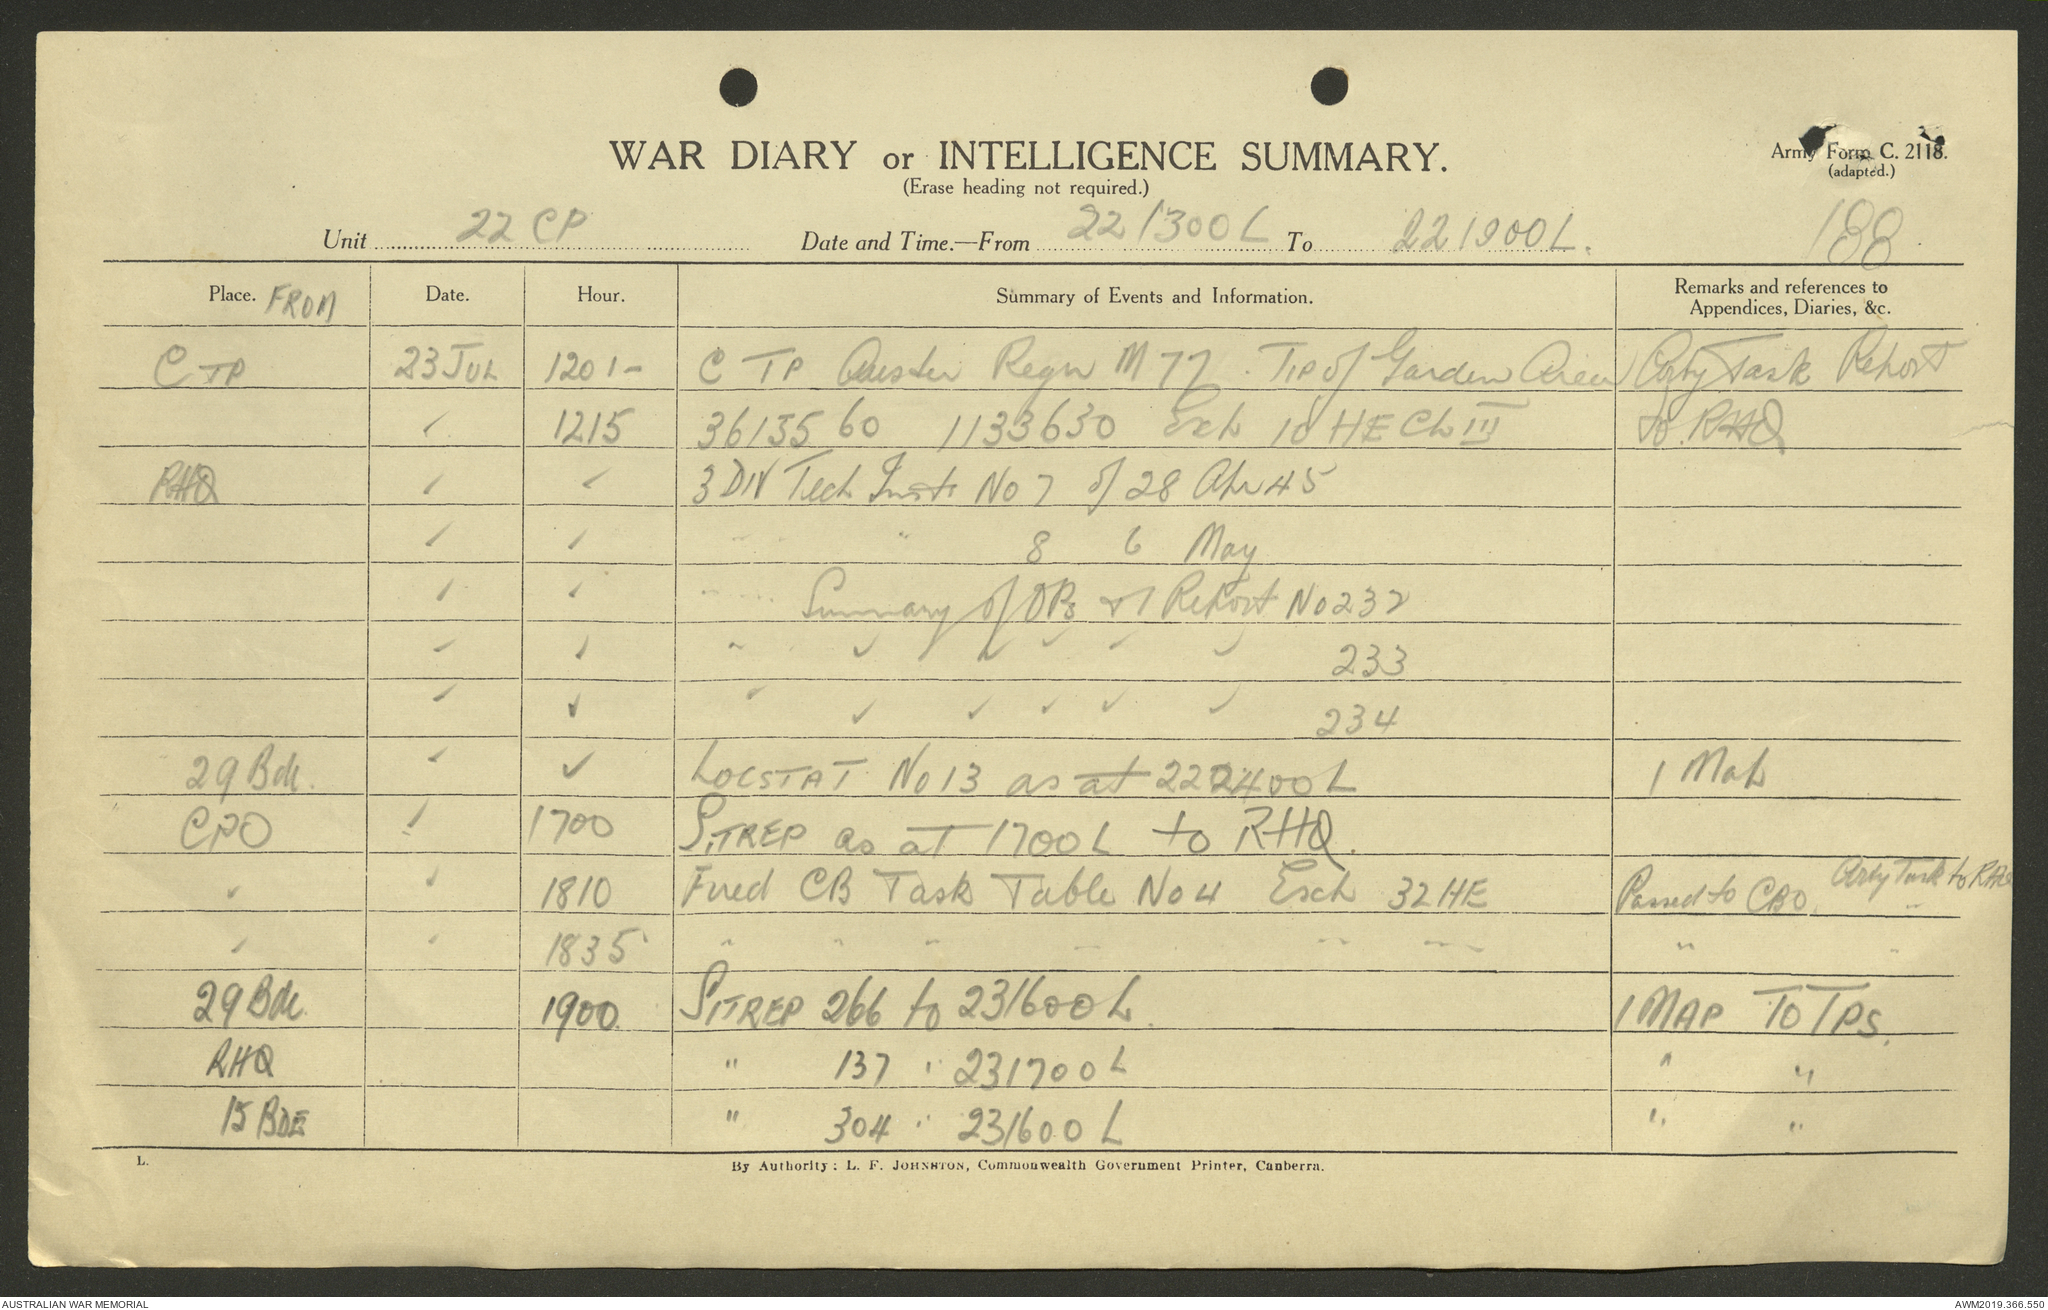 WAR DIARY or INTELLIGENCE SUMMARY.
(Erase heading not required.)
Army Form C. 2118.
(adapted.)
188
Unit 22 CP Date and Time.—From 221300L To 221900L.
Place. FROM Date. Hour. Summary of Events and Information. Remarks and references to Appendices, Diaries, &c.
C TP 23 JUL 1201- C TP Auster Regn M77. Tip of Garden Area Arty Task Report
✓ 1215 36135560 1133630 Exh 10 HE Ch III to RHQ
RHQ ✓ ✓ 3 DIV Tech Instr No 7 of 28 Apr 45
✓ ✓ " " " 8 6 May
✓ ✓ " " Summary of OPs Report No 232
✓ ✓ " ✓ ✓ ✓ ✓ ✓ 233
✓ ✓ " ✓ ✓ ✓ ✓ ✓ 234
29 Bde. ✓ ✓ LOCSTAT No 13 as at 222400L 1 Map
CPO ✓ 1700 SITREP as at 1700L to RHQ.
✓ ✓ 1810 Fired CB Task Table No 4 Exh 32 HE Passed to CBO Arty Task to RHQ
✓ ✓ 1835 " " " " " " " "
29 Bde. 1900 SITREP 266 to 231600L. 1 MAP TO TPS.
RHQ " 137 " 231700L " "
15 BDE " 304 " 231600L " "
L.
By Authority: L. F. JOHNSTON, Commonwealth Government Printer, Canberra.
AUSTRALIAN WAR MEMORIAL
AWM2019.366.550